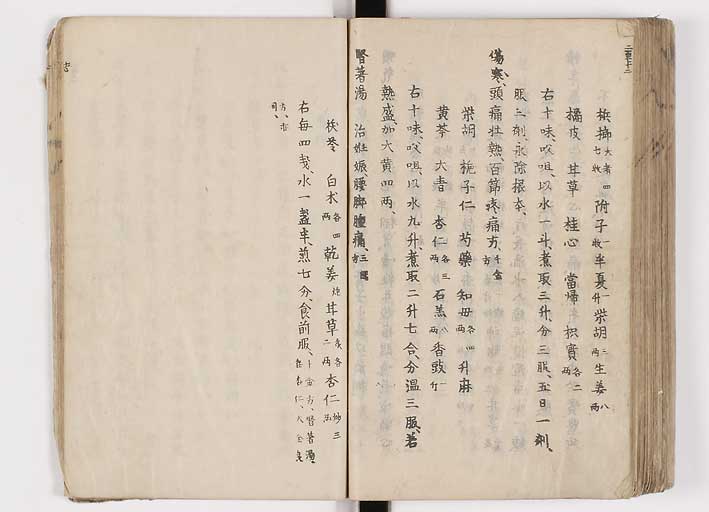 檳榔大者七枚 附子一枚 半夏一升 柴胡三兩 生姜八兩
橘皮 甘草 桂心 當帰 枳實各二兩
右十味、㕮咀、以水一斗、煮取三升、分三服、五日一剤、
服三剤、永除根本、
傷寒、頭痛壮熱百節疼痛方 千金方
柴胡 梔子仁 芍藥 知母各四兩 升麻
黄芩 大青 杏仁各三兩 石羔八兩 香豉一
右十味、㕮咀、以水九升、煮取二升七合、分温三服、若
熱盛、加大黄四兩、
腎著湯 治妊娠、腰脚腫痛、
茯苓 白术各四兩 乾姜炮 甘草炙各二兩 杏仁炒三
右每四戔、水一盞半、煎七分、食前服、千金方、腎著湯、
無杏仁、